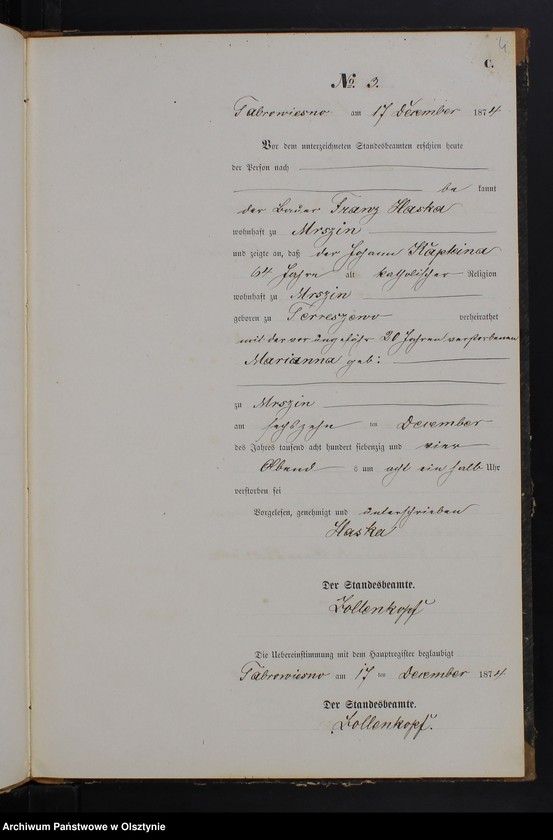 4
C.
No. 3.
Fabrowiesno am 17 December 1874
Vor dem unterzeichneten Standesbeamten erschien heute
der Person nach
be kannt
der Bauer Franz Haska
wohnhaft zu Mrszin
und zeigte an, daß der Johann Kapkina
64 Jahre alt katholischer Religion
wohnhaft zu Mrszin
geboren zu Terreszewo verheirathet
mit der vor ungefähr 20 Jahren verstorbenen
Marianna geb:
zu Mrszin
am sechszehn ten December
des Jahres tausend acht hundert siebenzig und vier
Abend s um acht ein halb Uhr
verstorben sei
Vorgelesen, genehmigt und unterschrieben
Haska
Der Standesbeamte.
Zollenkopf
Die Uebereinstimmung mit dem Hauptregister beglaubigt
Fabrowiesno am 17 ten December 1874
Der Standesbeamte.
Zollenkopf.
Archiwum Państwowe w Olsztynie